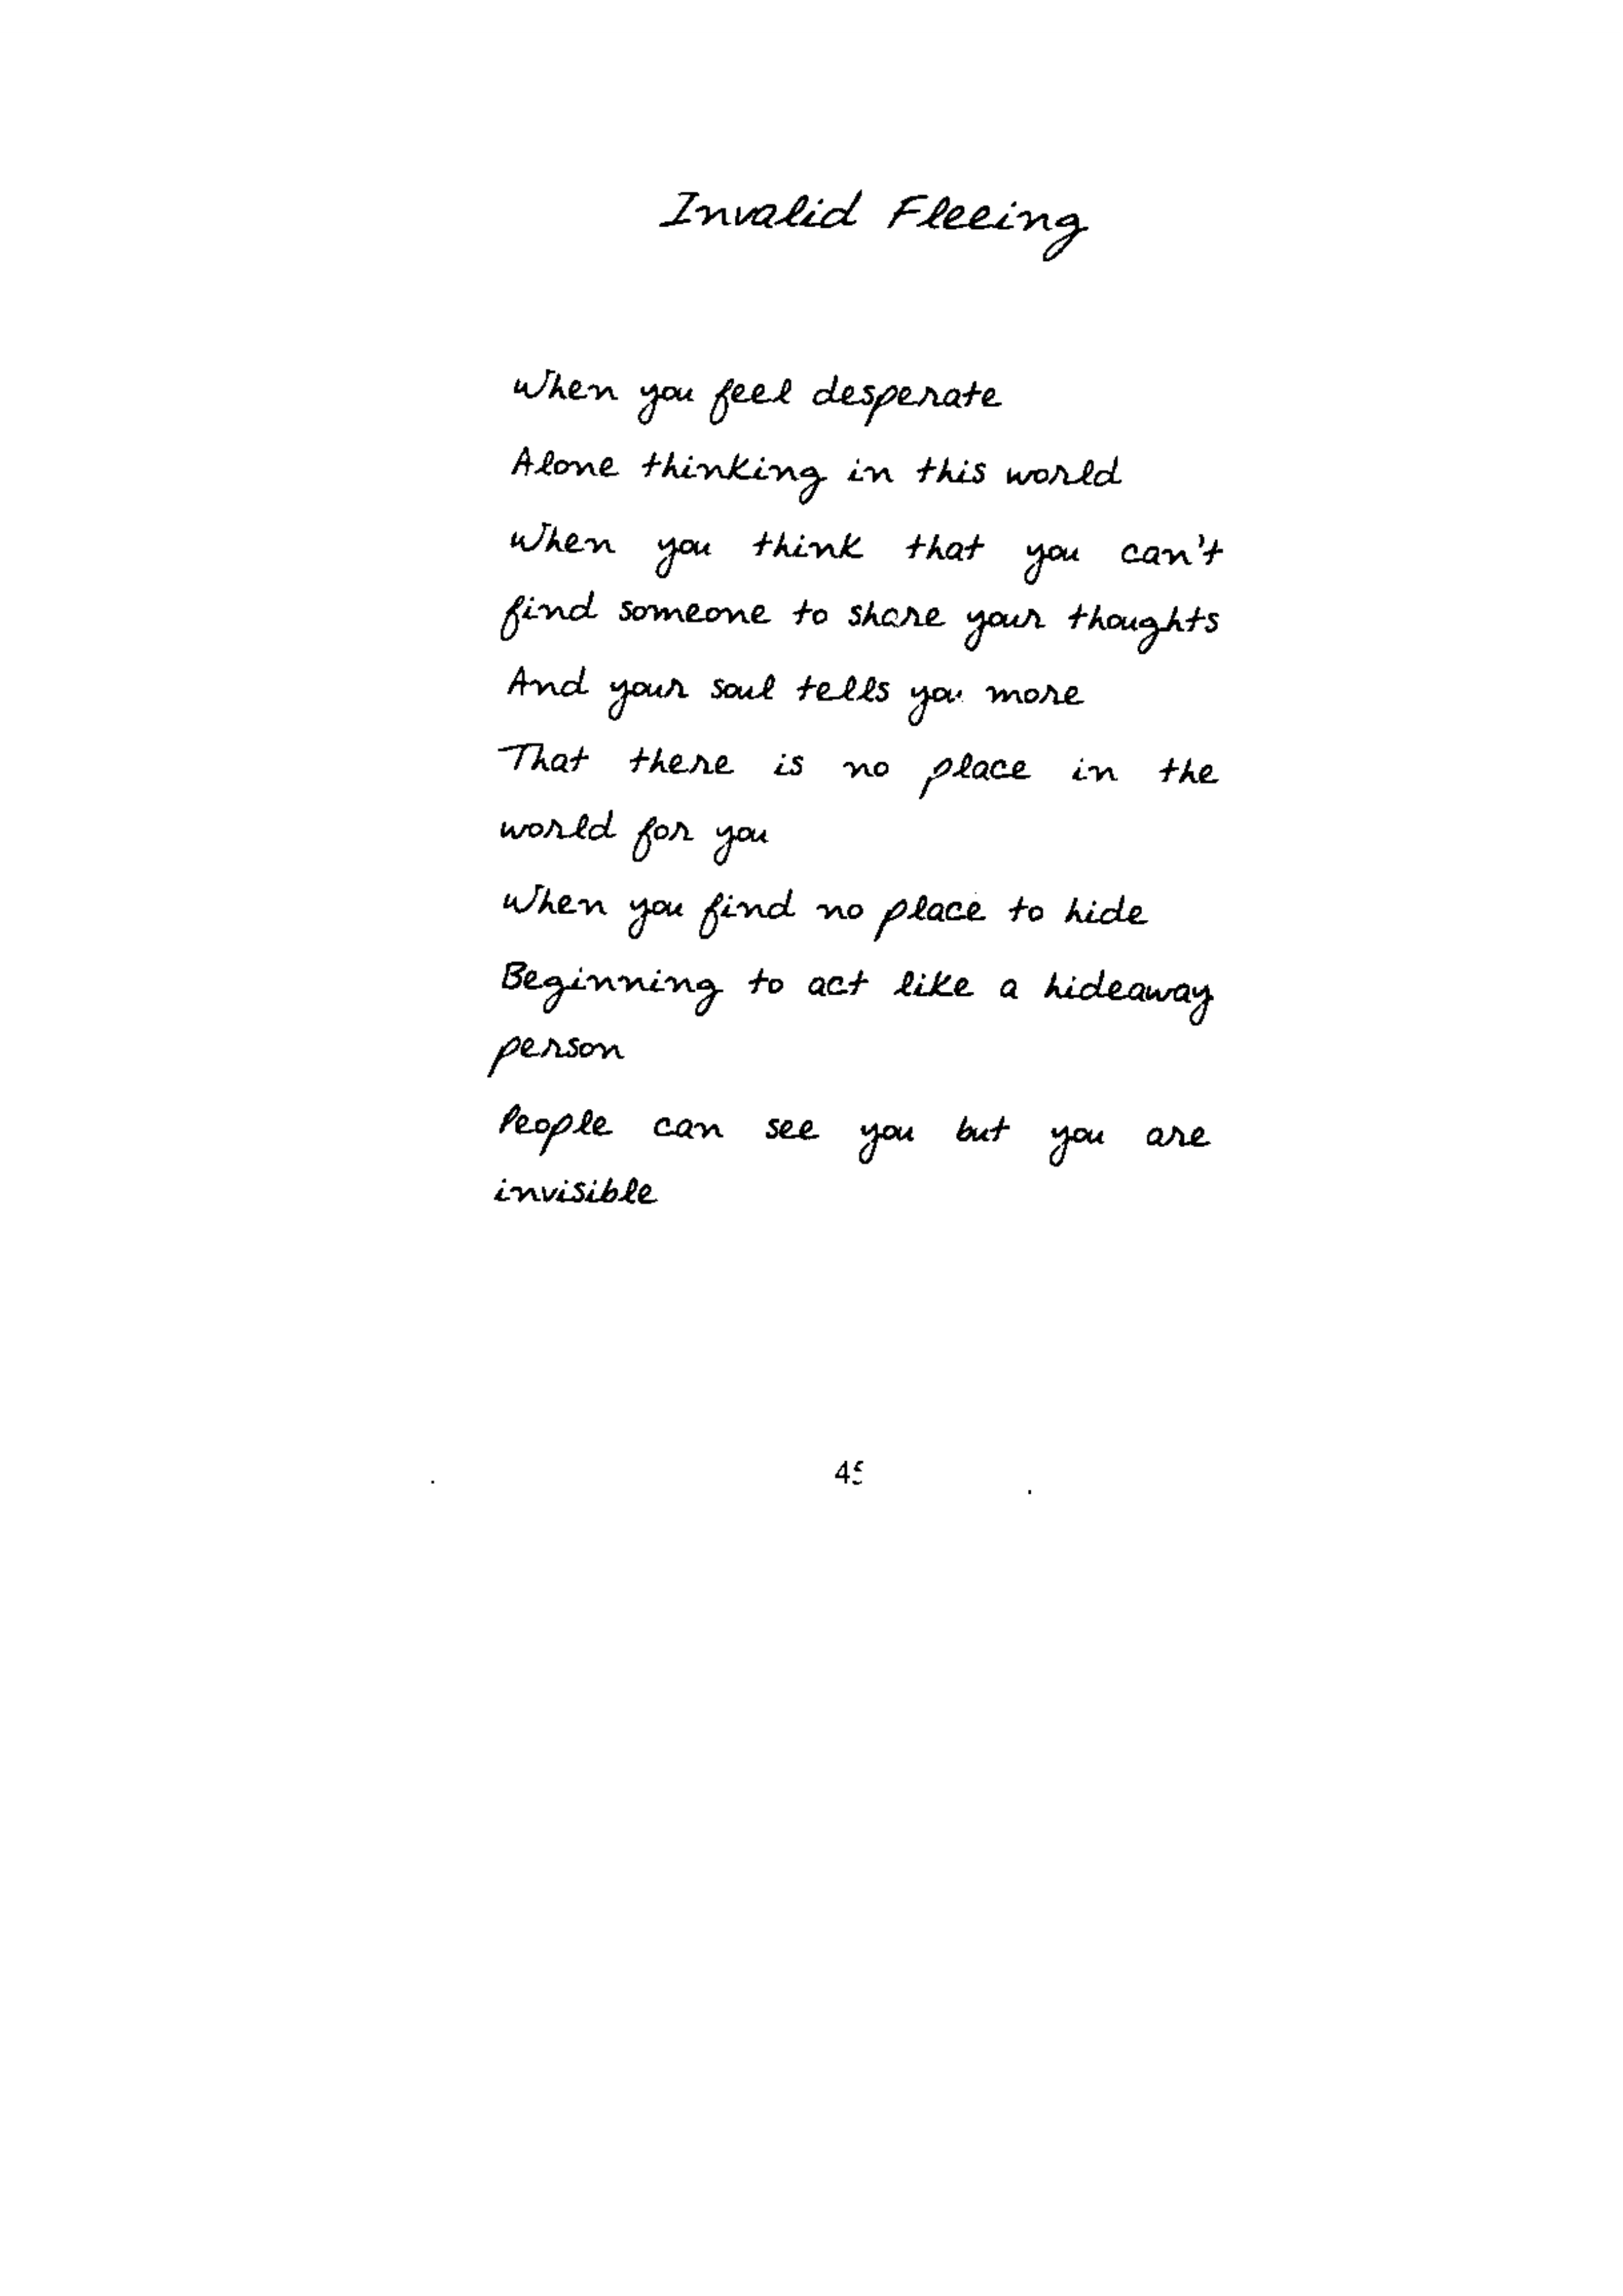 Invalid Fleeing
When you feel desperate
Alone thinking in this world
When you think that you can't
find someone to share your thoughts
And your soul tells you more
That there is no place in the
world for you
When you find no place to hide
Beginning to act like a hideaway
person
People can see you but you are
invisible
45